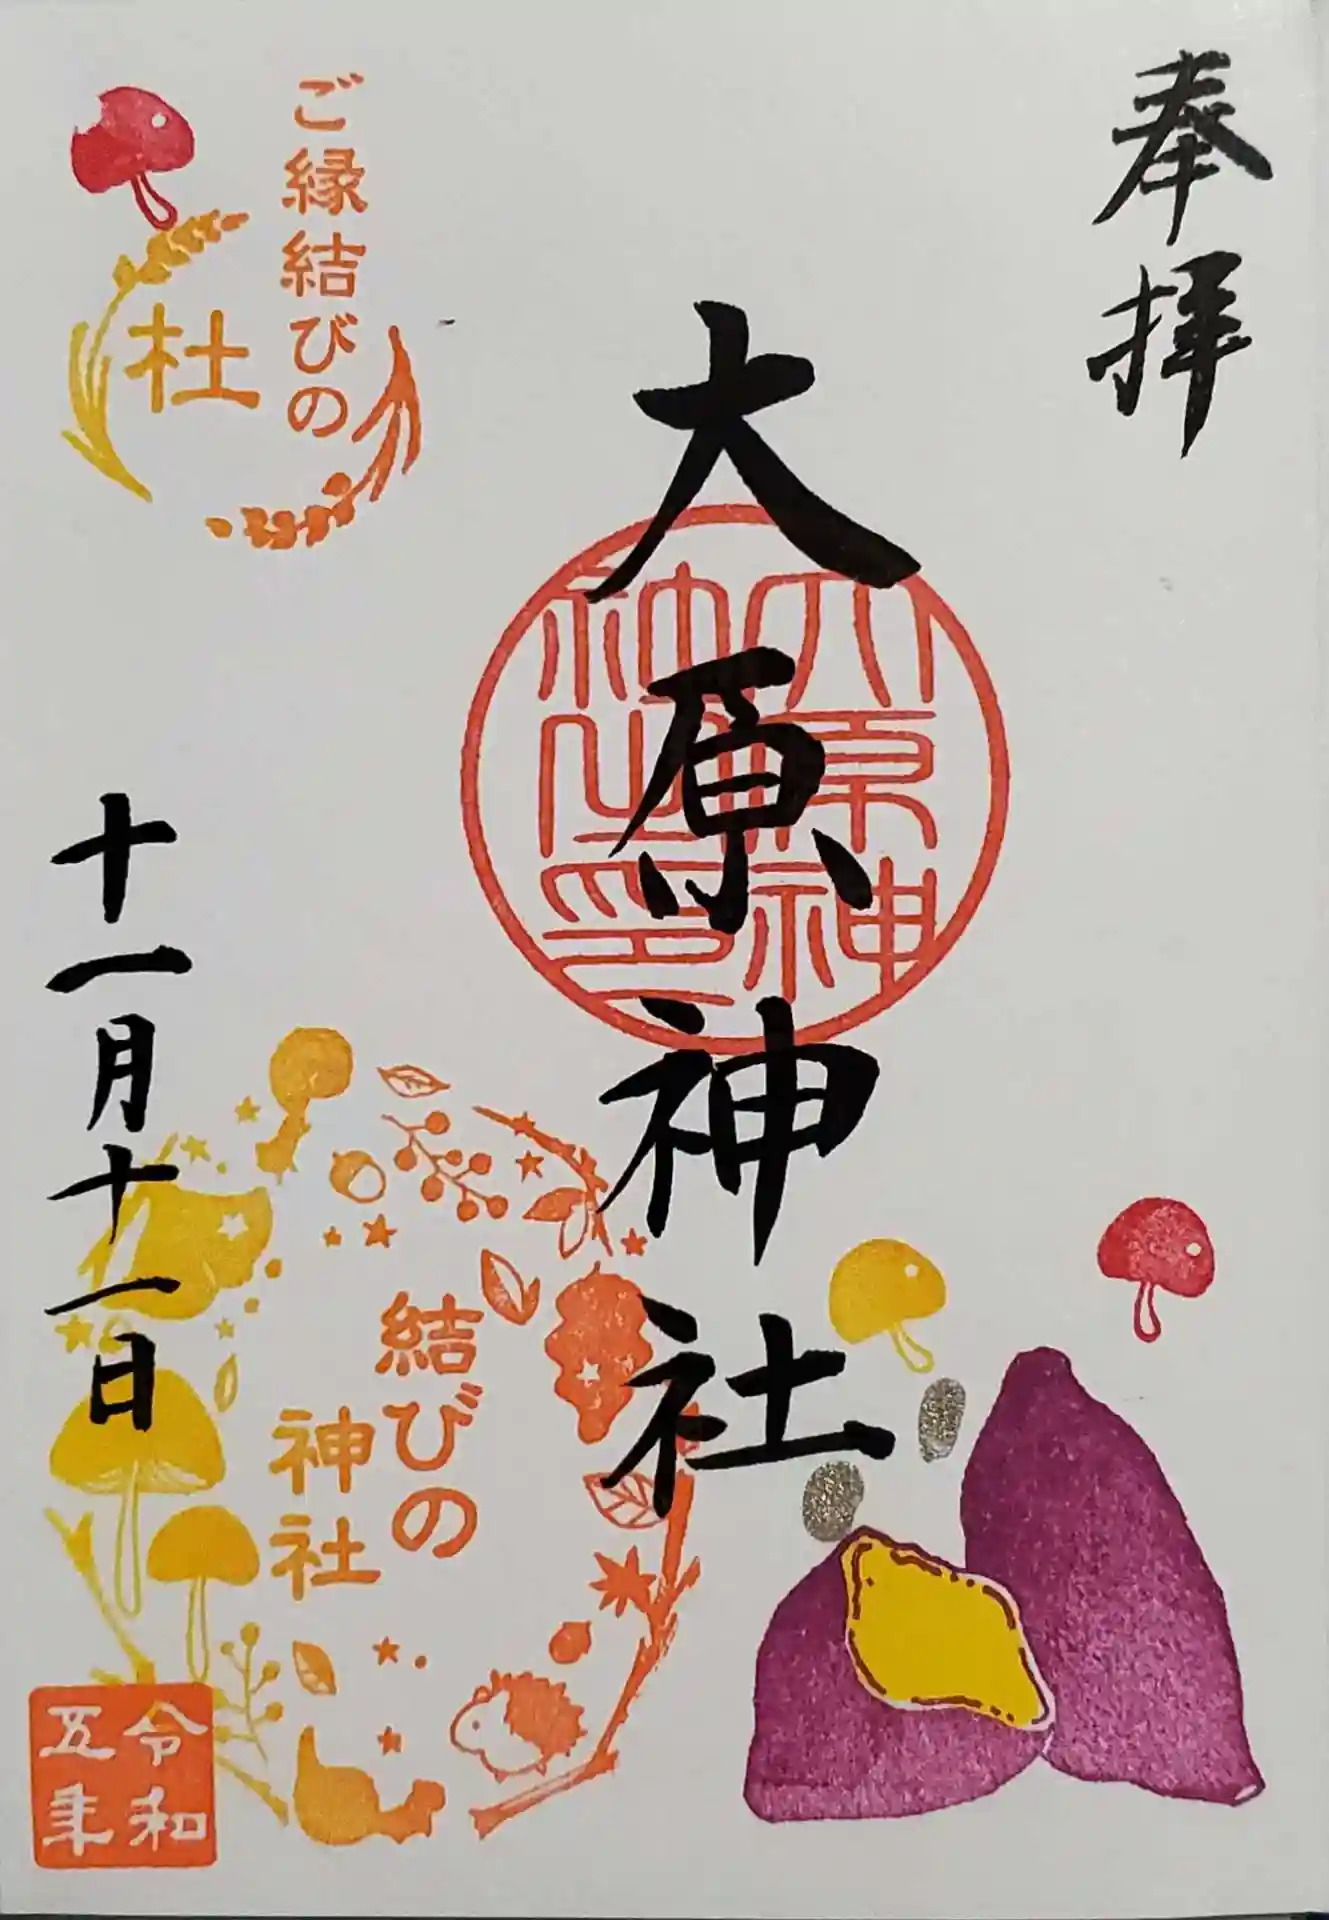 奉拝
大原神社
大原神
社之印
ご縁結びの
杜
結びの
神社
十一月十一日
令和
五年